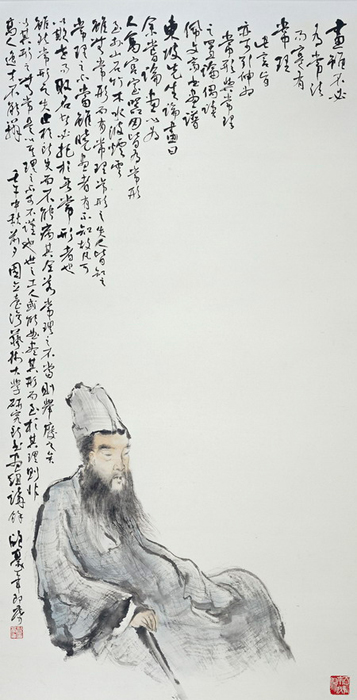 畫雖不必
為常法
而實有
常理
此言旨
亦可引伸為
常形與常理
之論偶讀
佩文齋書畫譜
東坡先生論畫曰
余嘗論畫以為
人禽宮室器用皆有常形
至於山石竹木水波煙雲
雖無常形而有常理常形之失人皆知之
常理之不當雖曉畫者有不知故凡可
以欺世而取名者必托於無常形者也
雖然常形之失止於所失而不能病其全若常理之不當則舉廢之矣
以其形之無常是以其理不可不謹也世之工人或能曲盡其形而至於其理則非
高人逸士不能辨 壬午中秋前夕國立臺灣藝術大學研究所書畫組講餘